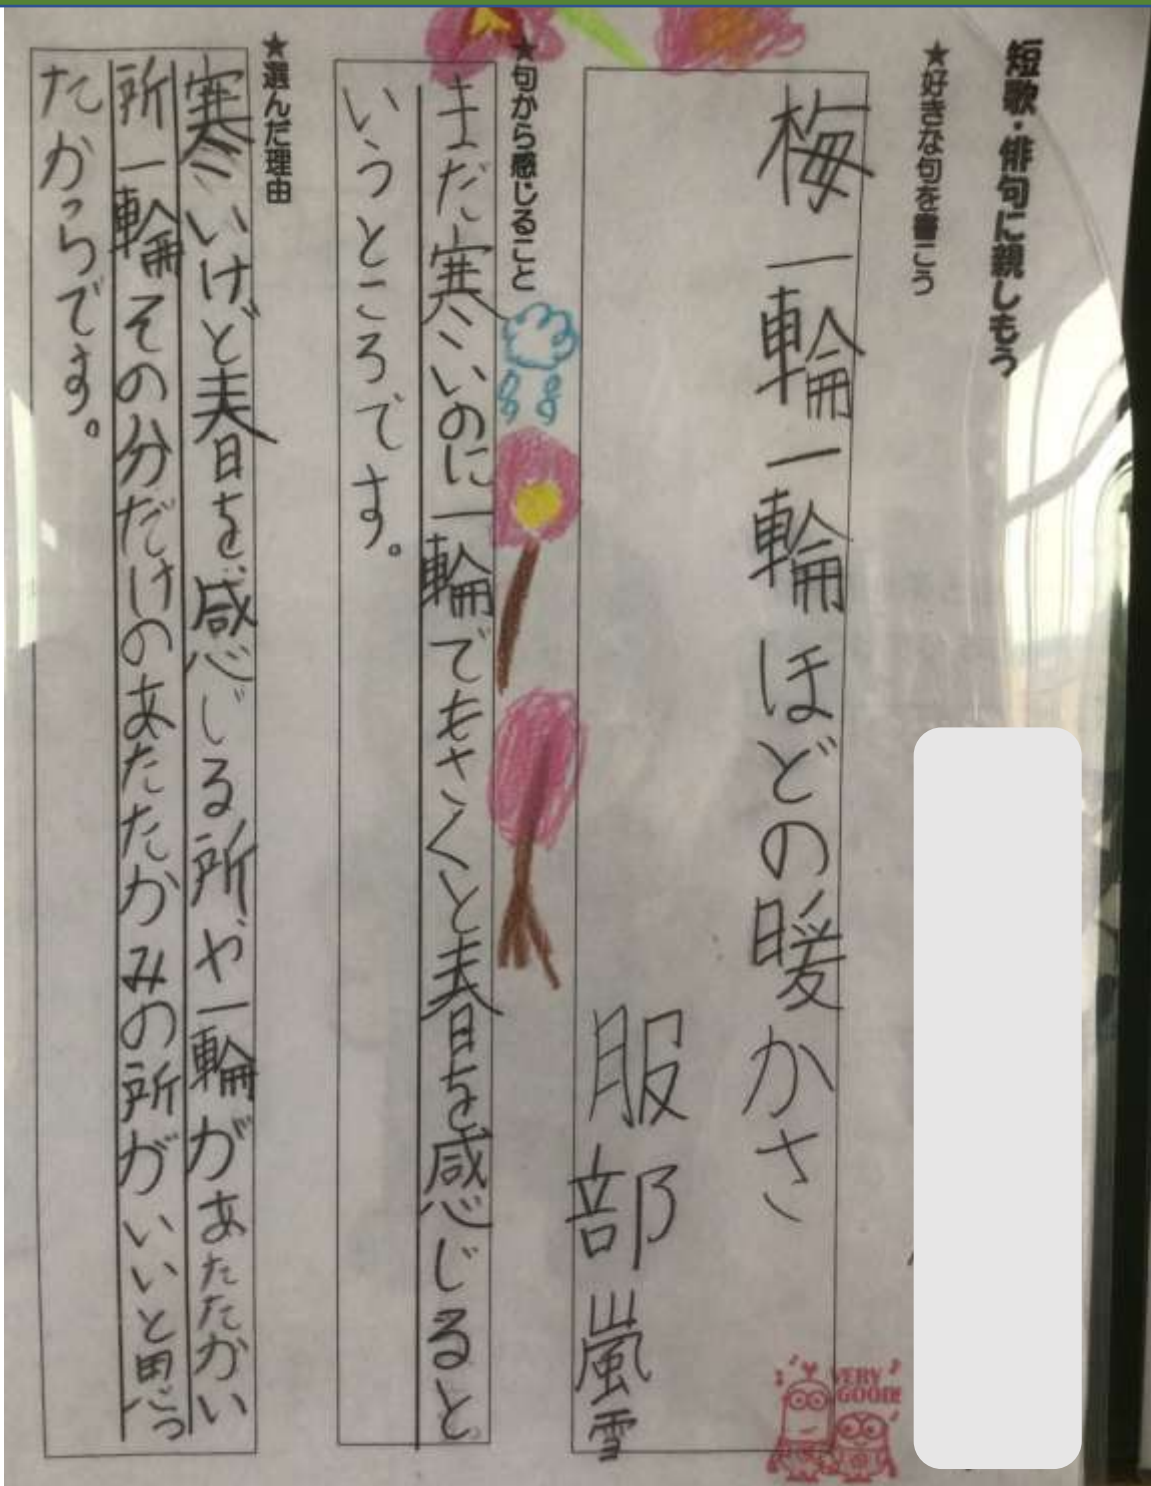 短歌・俳句に親しもう
★好きな句を書こう
梅一輪一輪ほどの暖かさ
服部嵐雪
VERY
GOOD!!
★句から感じること
まだ寒いのに一輪でもさくと春を感じると
いうところです。
★選んだ理由
寒いけど春を感じる所や一輪があたたかい
所一輪その分だけのあたたかみの所がいいと思っ
たからです。